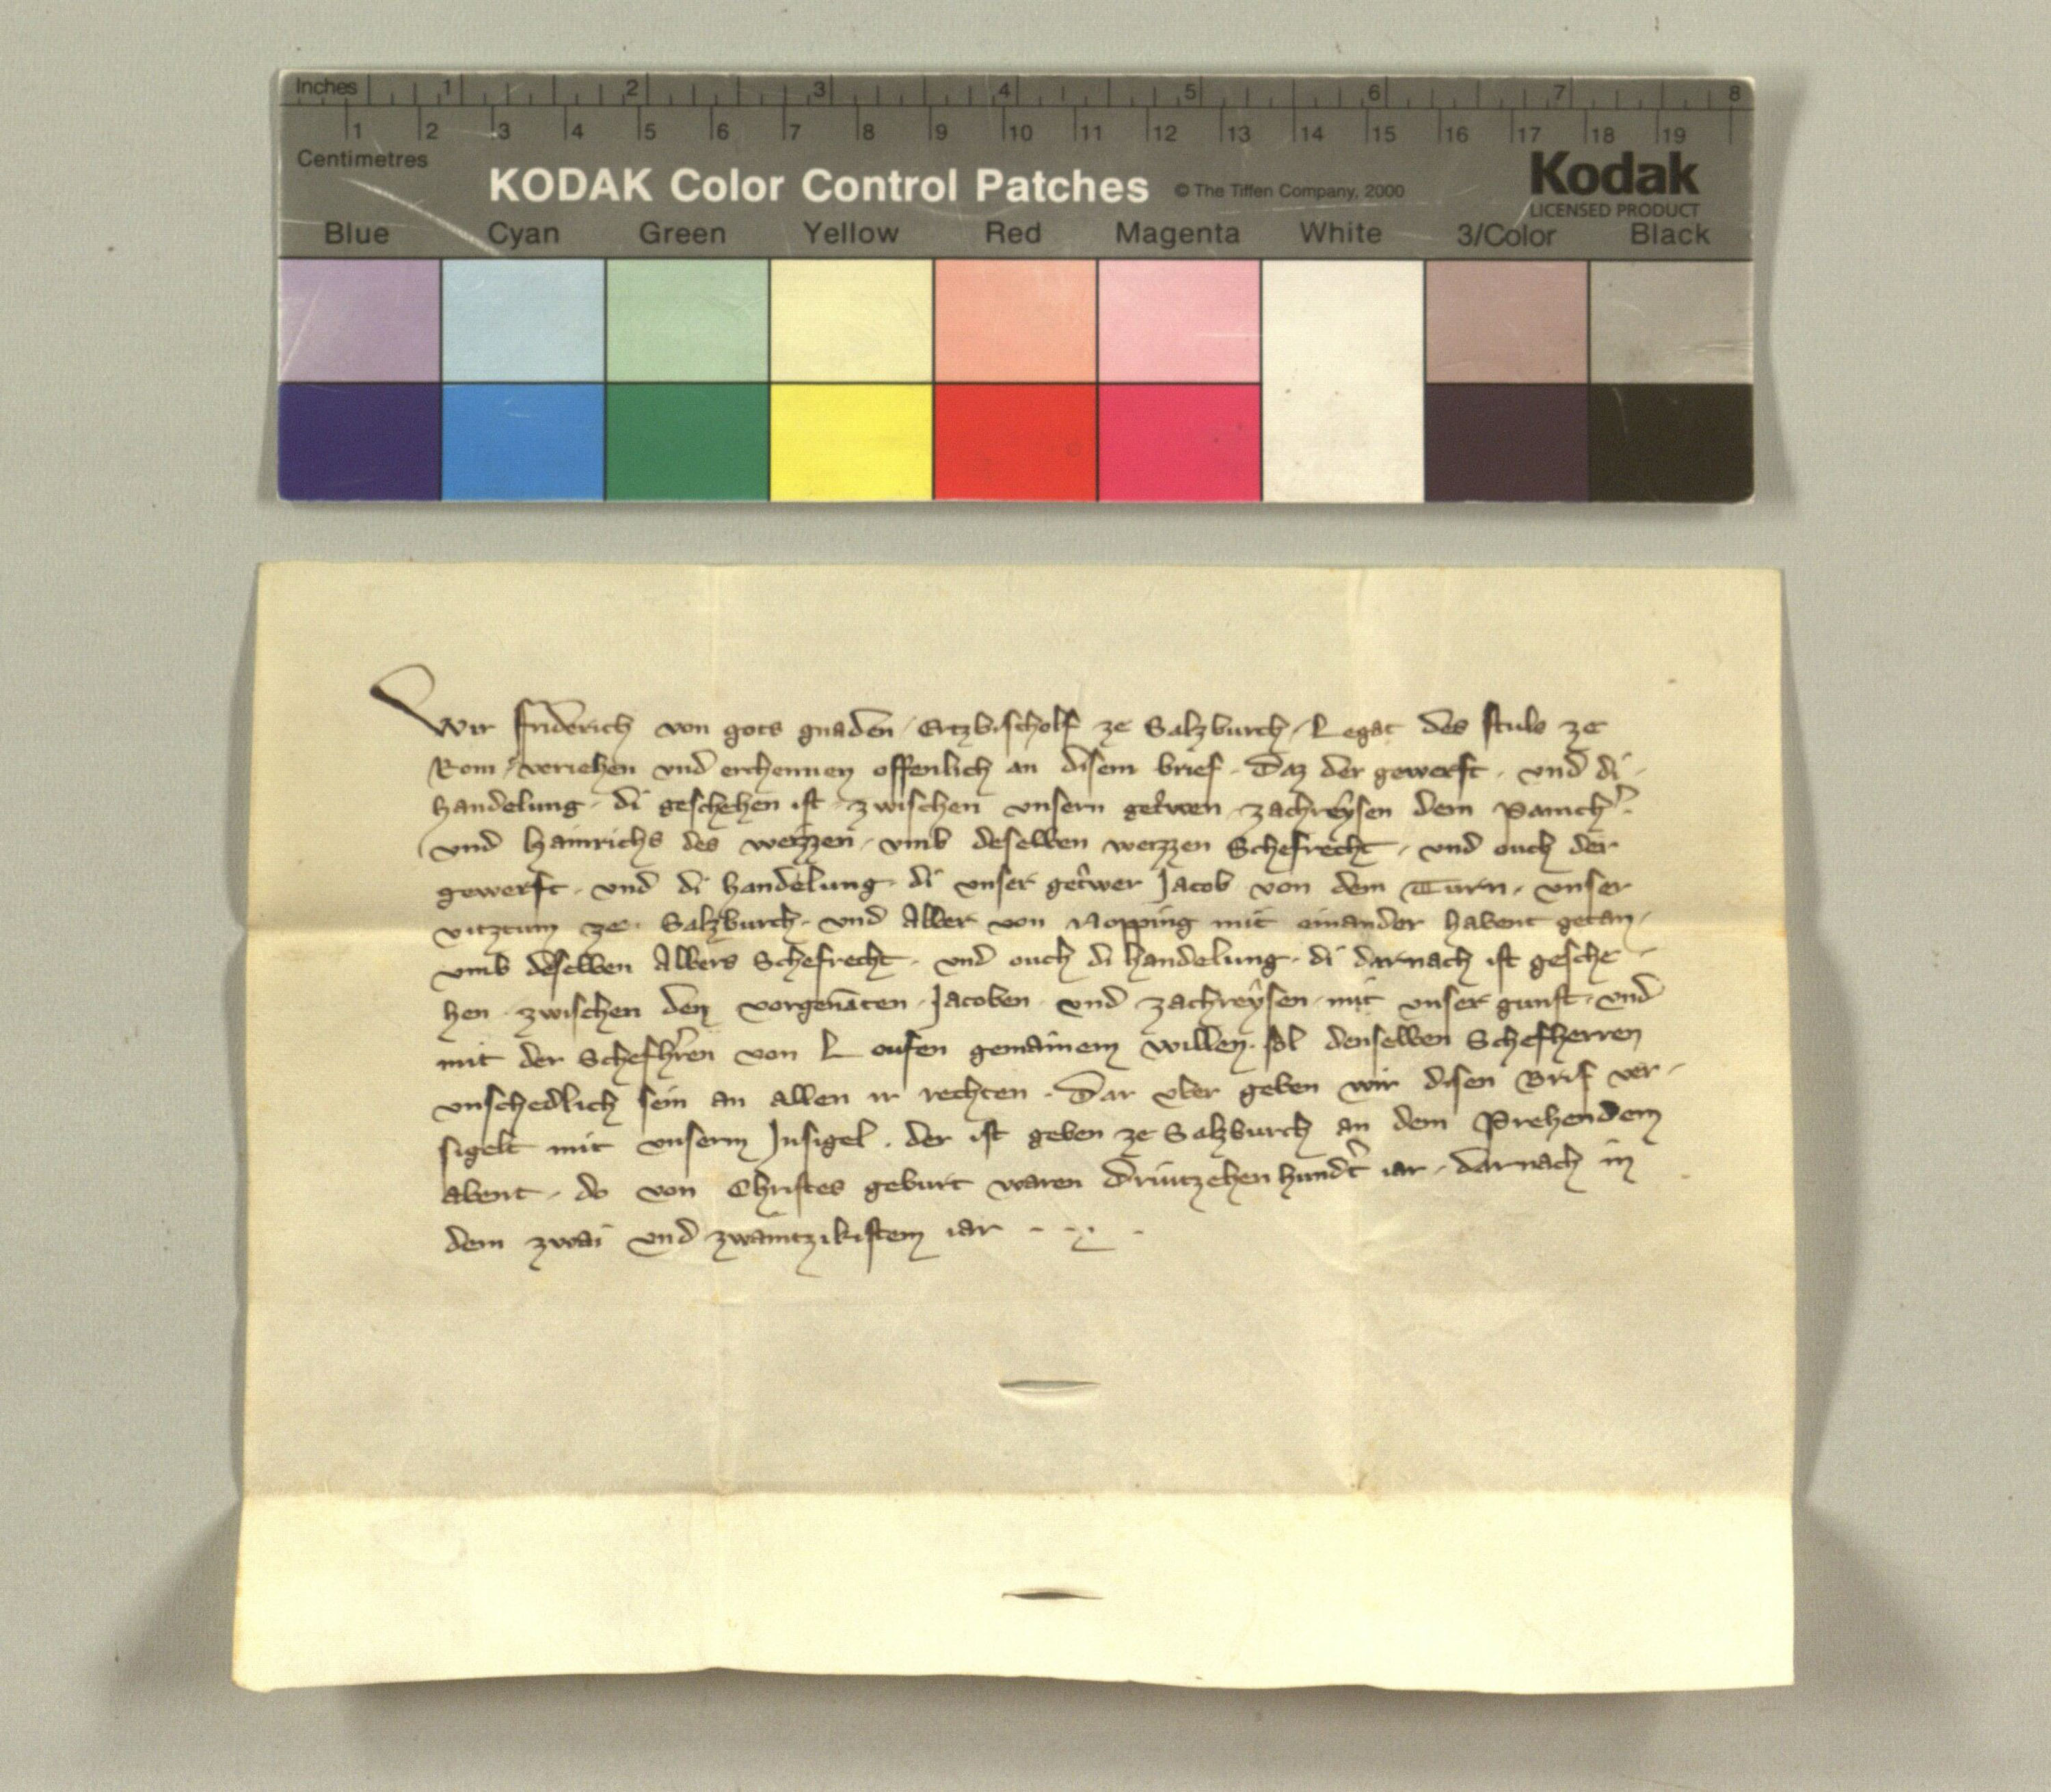 Inches 1 2 3 4 5 6 7 8
1 2 3 4 5 6 7 8 9 10 11 12 13 14 15 16 17 18 19
Centimetres
KODAK Color Control Patches © The Tiffen Company, 2000 Kodak
LICENSED PRODUCT
Blue Cyan Green Yellow Red Magenta White 3/Color Black
Wir Friderich von gots gnaden Ertzbischolf ze Salzburch Legat des stuls ze
Rom veriehen vnd erchennen offenlich an disem brief. Daz der gewerft. vnd di
handelung. di geschehen ist. zwischen vnsern getrwen zachreysen dem
vnd Hainrichs des weizzen. vmb deselben weizzen Schefrecht. vnd ouch der
gewerft. vnd di handelung. di vnser getrwer Jacob von dem Turn. vnser
vitztum ze Salzburch. vnd Alber von Nopping mit einander habent getan.
vmb deselben Albers Schefrecht. vnd ouch di handelung. di darnach ist gesche-
hen. zwischen den vorgenāten. Jacoben. vnd zachreysen. mit vnser gunst. vnd
mit der Schefhren von Loufen gemainem willen. sol denselben Schefherren
vnschedlich sein an allen ir rechten. Dar vber geben wir disen Brif ver-
sigelt mit vnserm Jnsigel. der ist geben ze Salzburch an dem Prehendem
abent. do von Christes geburt waren Driutzehen hundt iar. darnach in
dem zwai vnd zwaintzikistem iar